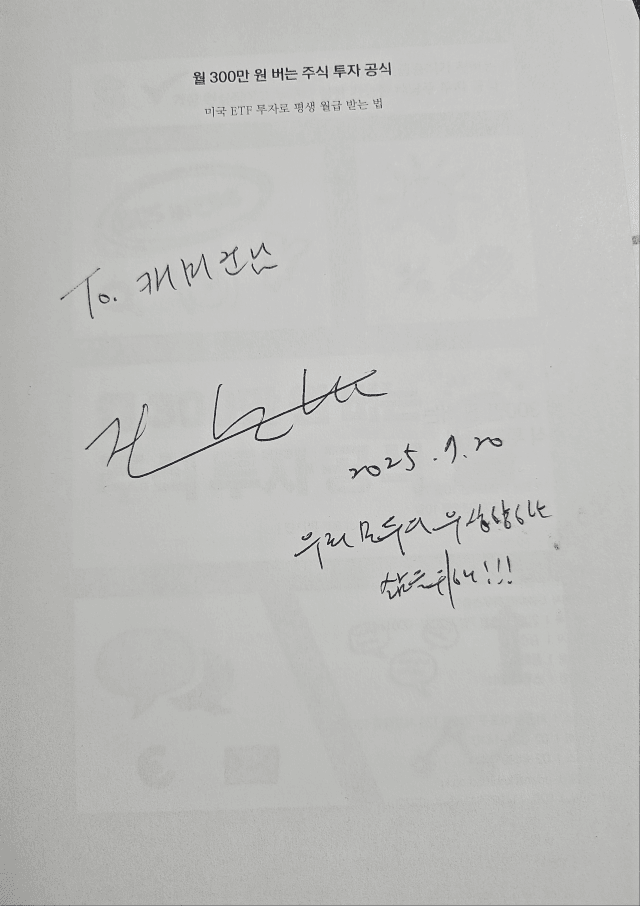 월 300만 원 버는 주식 투자 공식
미국 ETF 투자로 평생 월급 받는 법
To. 캐미건님
2025. 9. 20
우리 모두다 우상향하는
삶을 위해!!!